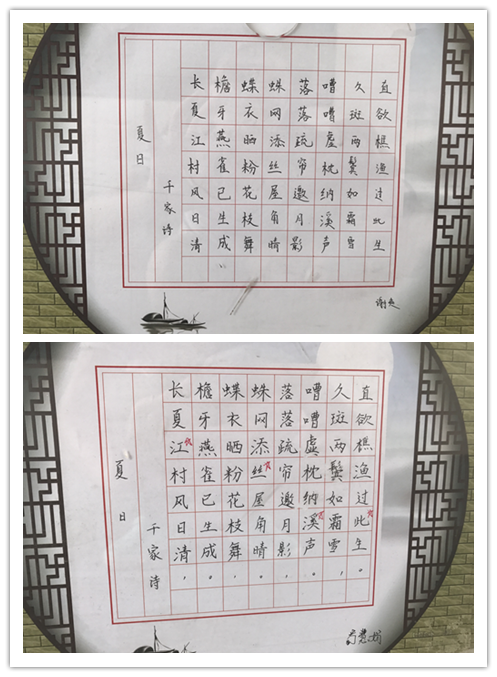 夏日
千家诗
长夏江村风日清
檐牙燕雀已生成
蝶衣晒粉花枝舞
蛛网添丝屋角晴
落落疏帘邀月影
嘈嘈虚枕纳溪声
久斑两鬓如霜雪
直欲樵渔过此生
夏日
千家诗
长夏江村风日清，
檐牙燕雀已生成。
蝶衣晒粉花枝舞，
蛛网添丝屋角晴。
落落疏帘邀月影，
嘈嘈虚枕纳溪声。
久斑两鬓如霜雪，
直欲樵渔过此生。